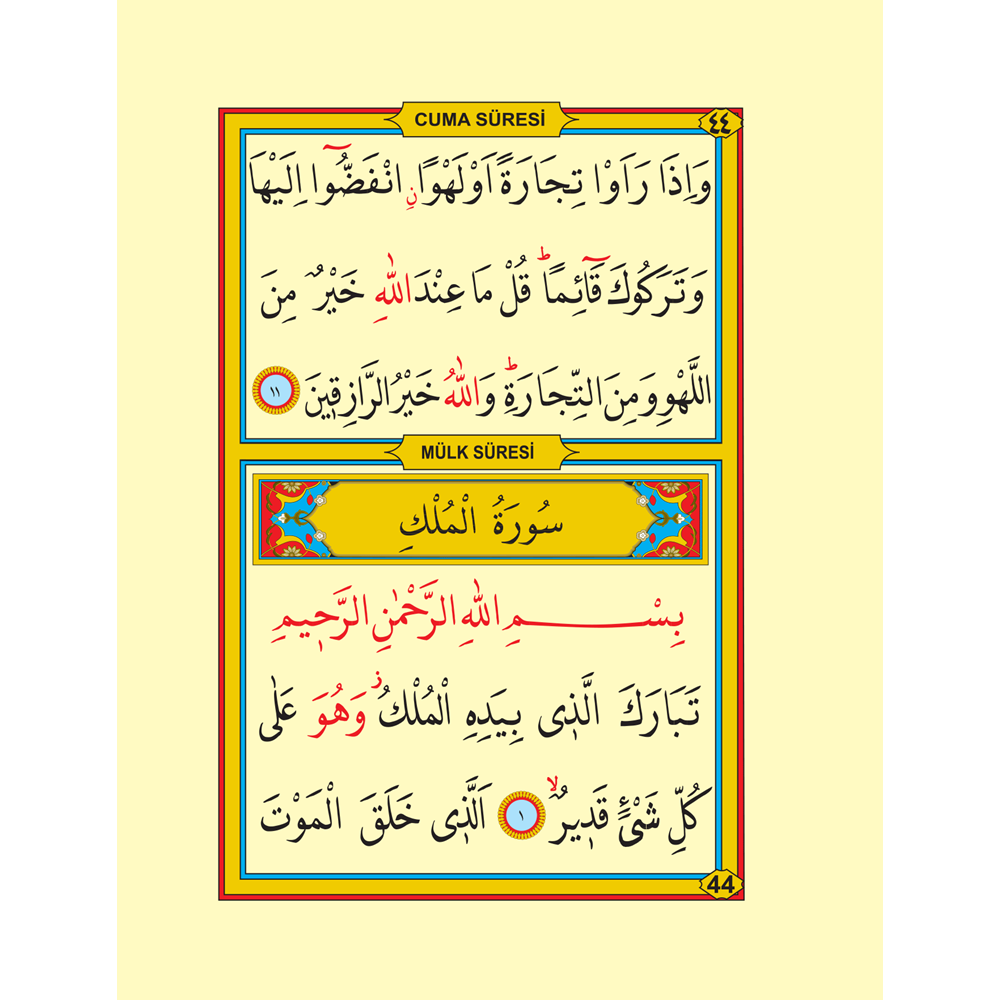 CUMA SÛRESİ
٤٤
وَاِذَا رَاَوْا تِجَارَةً اَوْلَهْوًا نِ انْفَضُّٓوا اِلَيْهَا
وَتَرَكُوكَ قَٓائِمًاۜ قُلْ مَا عِنْدَ اللّٰهِ خَيْرٌ مِنَ
اللَّهْوِ وَمِنَ التِّجَارَةِۜ وَاللّٰهُ خَيْرُ الرَّازِقٖينَ ١١
MÜLK SÛRESİ
سُورَةُ الْمُلْكِ
بِسْمِ اللّٰهِ الرَّحْمٰنِ الرَّحٖيمِ
تَبَارَكَ الَّذٖى بِيَدِهِ الْمُلْكُؗ وَهُوَ عَلٰى
كُلِّ شَىْءٍ قَدٖيرٌۙ ١ اَلَّذٖى خَلَقَ الْمَوْتَ
44